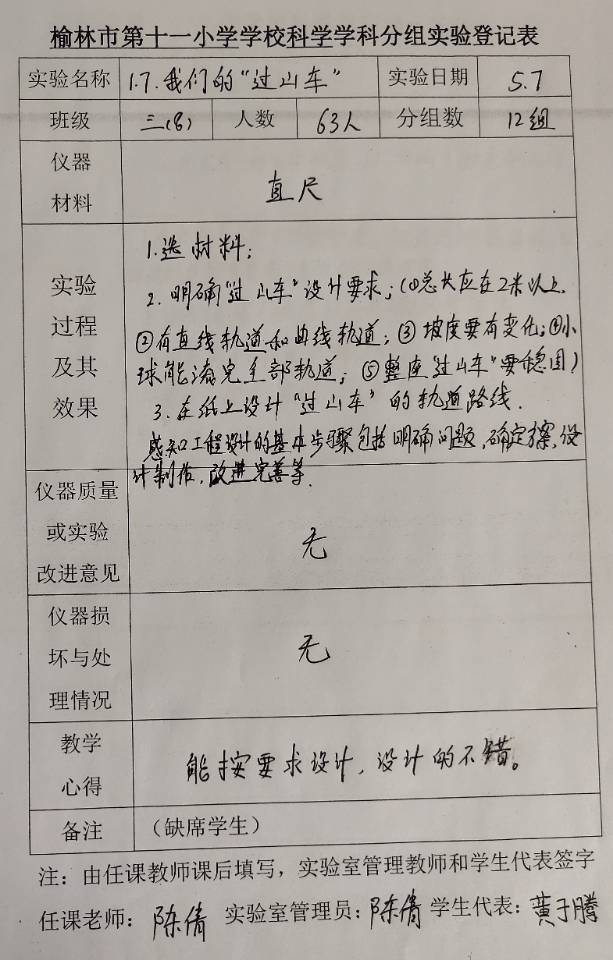 榆林市第十一小学学校科学学科分组实验登记表
实验名称 1.7.我们的“过山车” 实验日期 5.7
班级 三(8) 人数 63人 分组数 12组
仪器
材料
直尺
实验
过程
及其
效果
1.选材料;
2.明确“过山车”设计要求;(①总长应在2米以上.
②有直线轨道和曲线轨道;③坡度要有变化;④小
球能滚完全部轨道;⑤整座“过山车”要稳固)
3.在纸上设计“过山车”的轨道路线.
感知工程设计的基本步骤包括明确问题,确定方案,设
计制作,改进完善等.
仪器质量
或实验
改进意见
无
仪器损
坏与处
理情况
无
教学
心得
能按要求设计,设计的不错。
备注 (缺席学生)
注:由任课教师课后填写,实验室管理教师和学生代表签字
任课老师:陈倩 实验室管理员:陈倩 学生代表:黄于腾